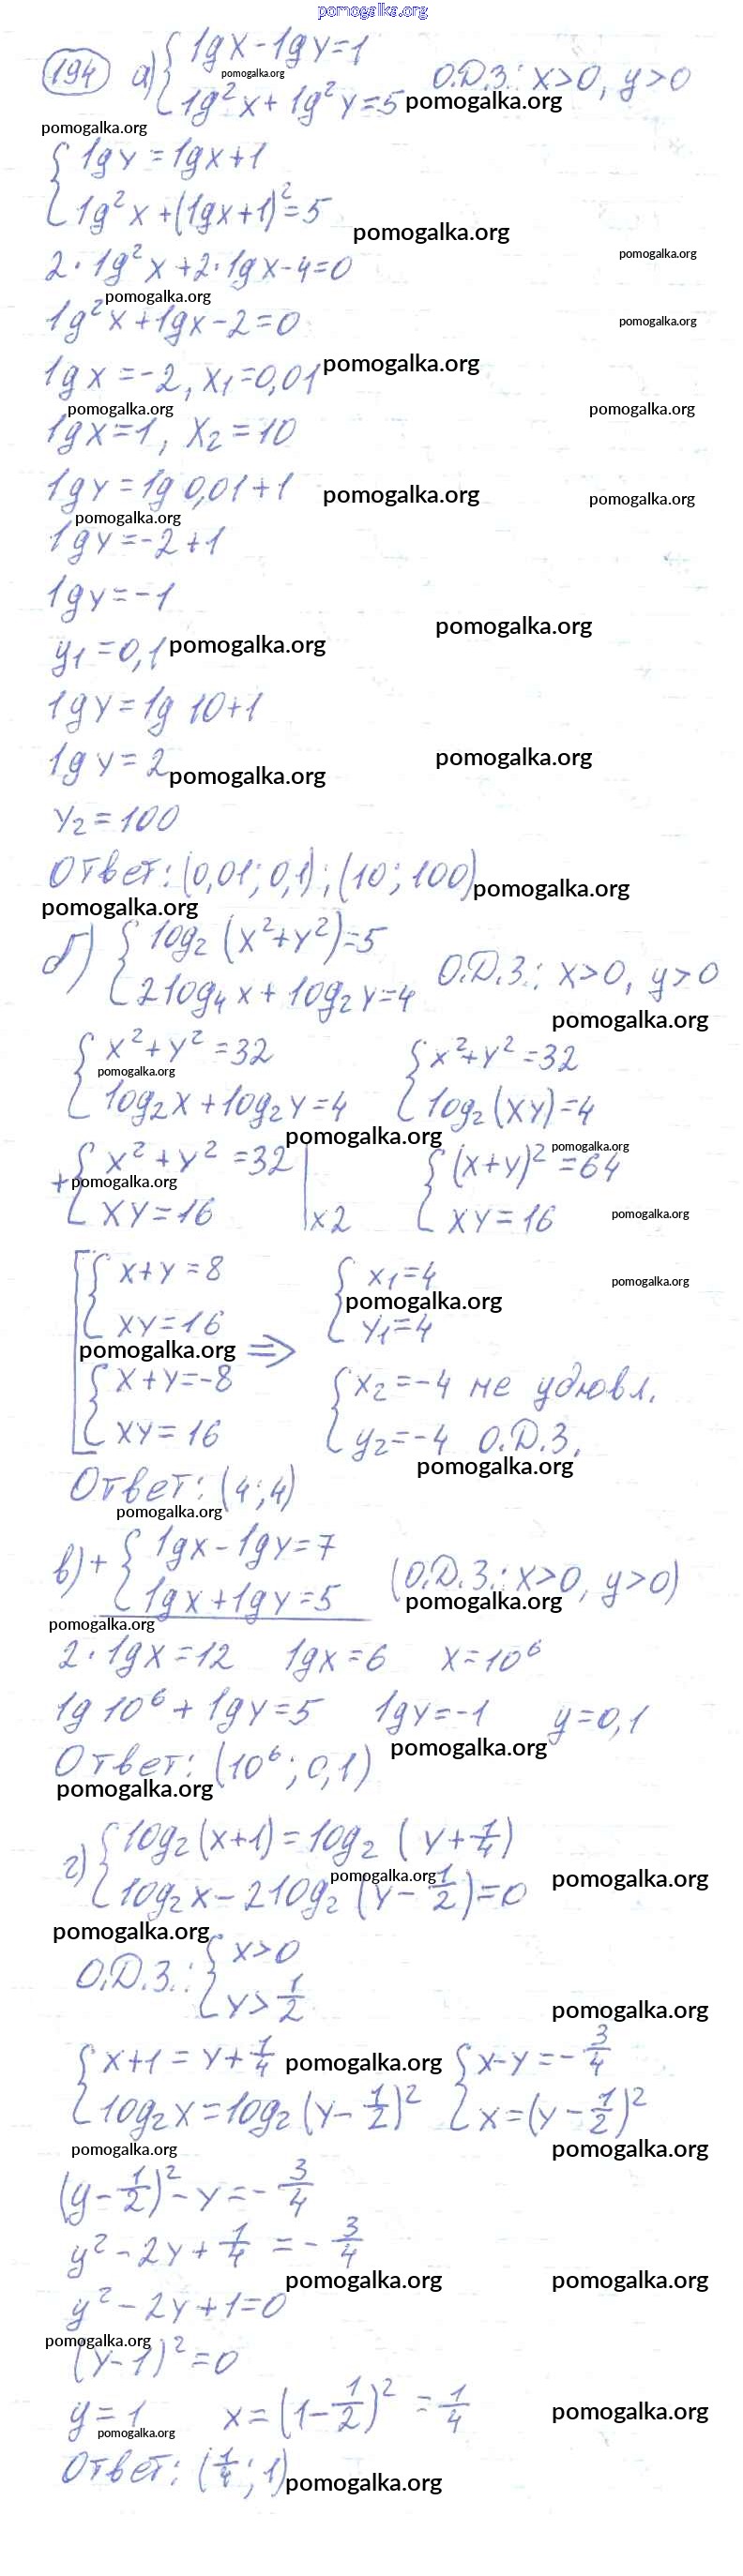 pomogalka.org
194 а) { lg x - lg y = 1
lg² x + lg² y = 5
О.Д.З.: x>0, y>0
{ lg y = lg x + 1
lg² x + (lg x + 1)² = 5
2·lg² x + 2·lg x - 4 = 0
lg² x + lg x - 2 = 0
lg x = -2, x₁ = 0,01
lg x = 1, x₂ = 10
lg y = lg 0,01 + 1
lg y = -2 + 1
lg y = -1
y₁ = 0,1
lg y = lg 10 + 1
lg y = 2
y₂ = 100
Ответ: (0,01; 0,1); (10; 100)
б) { log₂ (x² + y²) = 5
2 log₄ x + log₂ y = 4
О.Д.З.: x>0, y>0
{ x² + y² = 32
log₂ x + log₂ y = 4
{ x² + y² = 32
log₂ (xy) = 4
+ { x² + y² = 32
xy = 16 | x2
{ (x+y)² = 64
xy = 16
[ { x + y = 8
xy = 16
{ x + y = -8
xy = 16
⇒
{ x₁ = 4
y₁ = 4
{ x₂ = -4 не удовл.
y₂ = -4 О.Д.З.
Ответ: (4; 4)
в) + { lg x - lg y = 7
lg x + lg y = 5
(О.Д.З.: x>0, y>0)
2·lg x = 12 lg x = 6 x = 10⁶
lg 10⁶ + lg y = 5 lg y = -1 y = 0,1
Ответ: (10⁶; 0,1)
г) { log₂ (x+1) = log₂ (y + 1/4)
log₂ x - 2 log₂ (y - 1/2) = 0
О.Д.З.: { x>0
y > 1/2
{ x + 1 = y + 1/4
log₂ x = log₂ (y - 1/2)²
{ x - y = - 3/4
x = (y - 1/2)²
(y - 1/2)² - y = - 3/4
y² - 2y + 1/4 = - 3/4
y² - 2y + 1 = 0
(y - 1)² = 0
y = 1 x = (1 - 1/2)² = 1/4
Ответ: (1/4; 1)
pomogalka.org